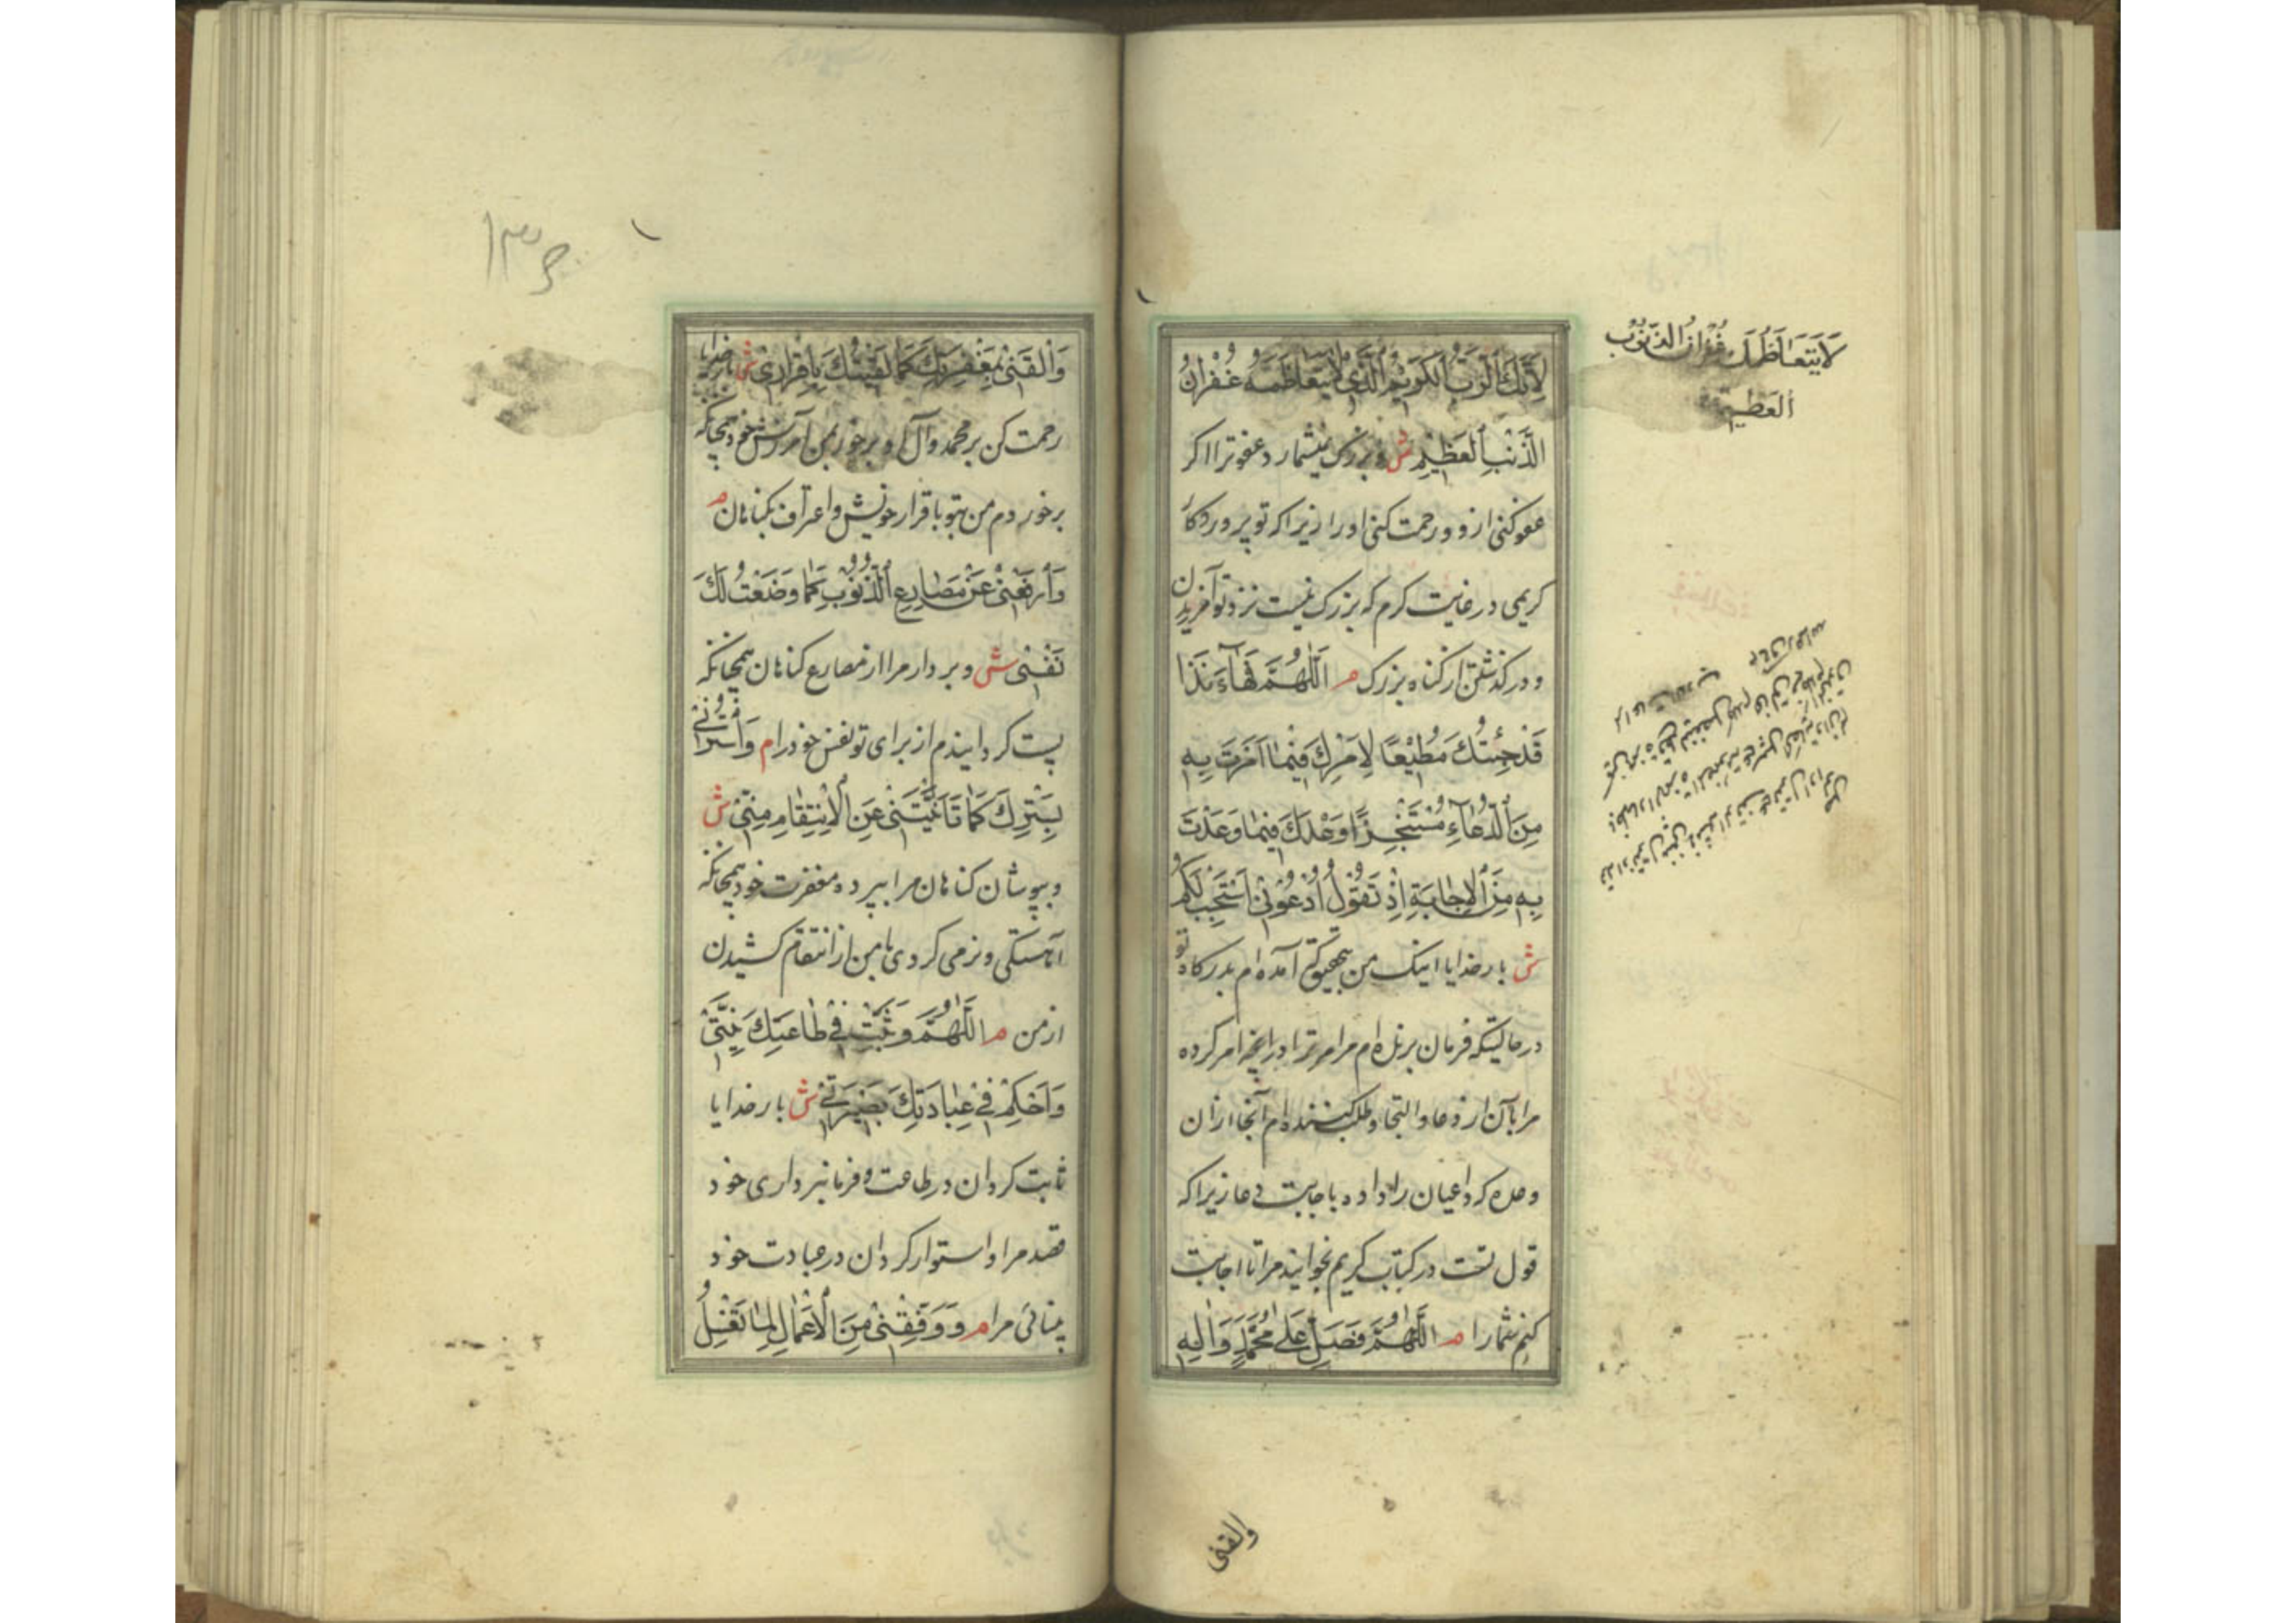 لِأَنَّكَ الرَّبُّ الْكَرِيمُ الَّذِي لَا يَتَعَاظَمُهُ غُفْرَانُ
الذَّنْبِ الْعَظِيمِ ش و بزرگ نمیشمارد عفو ترا اگر
عفو کنی ازو و رحمت کنی اورا زیرا که تو پروردگار
کریمی در غایت کرم که بزرگ نیست نزد تو آمرزیدن
و در گذشتن از گناه بزرگ م اَللّٰهُمَّ فَهَا أَنَا ذَا
قَدْ جِئْتُكَ مُطِيعًا لِأَمْرِكَ فِيمَا أَمَرْتَ بِهِ
مِنَ الدُّعَاءِ مُتَنَجِّزًا وَعْدَكَ فِيمَا وَعَدْتَ
بِهِ مِنَ الْإِجَابَةِ إِذْ تَقُولُ ادْعُونِي أَسْتَجِبْ لَكُمْ
ش بار خدایا اینک من آمده ام بدرگاه تو
در حالتیکه فرمان برنده ام مر امر ترا در انچه امر کرده
مرا بآن از دعا و التجا و طلب کننده ام از ان
وعده که داعیان را داده باجابت دعا زیرا که
قول تست در کتاب کریم بخوانید مرا تا اجابت
کنم شمارا م اَللّٰهُمَّ فَصَلِّ عَلَى مُحَمَّدٍ وَآلِهِ
لَا يَتَعَاظَمُكَ غُفْرَانُ الذُّنُوبِ
العَظِيمِ
والقنی
۱۳۵
وَالْقَنِي بِمَغْفِرَتِكَ كَمَا لَقِيتُكَ بِإِقْرَارِي ش بار خدایا
رحمت کن بر محمد و آل او و برخور بمن آمرزش خود همچنانکه
برخوردم من بتو باقرار خویش و اعتراف بگناهان م
وَارْفَعْنِي عَنْ مَصَارِعِ الذُّنُوبِ كَمَا وَضَعْتُ لَكَ
نَفْسِي ش و بردار مرا از مصارع گناهان همچنانکه
پست گردانیدم از برای تو نفس خود را م وَاسْتُرْنِي
بِسِتْرِكَ كَمَا تَأَنَّيْتَنِي عَنِ الْاِنْتِقَامِ مِنِّي ش
و بپوشان گناهان مرا بپرده مغفرت خود همچنانکه
آهستگی و نرمی کردی با من از انتقام کشیدن
از من م اَللّٰهُمَّ وَثَبِّتْ فِي طَاعَتِكَ نِيَّتِي
وَأَحْكِمْ فِي عِبَادَتِكَ بَصِيرَتِي ش بار خدایا
ثابت گردان در طاعت و فرمانبرداری خود
قصد مرا و استوار گردان در عبادت خود
بینائی مرا م وَوَفِّقْنِي مِنَ الْأَعْمَالِ لِمَا تَغْسِلُ